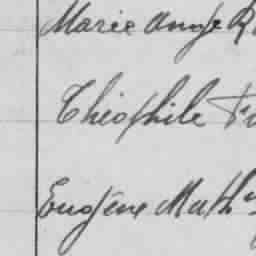 Marie Ange
Théophile
Eugène Math